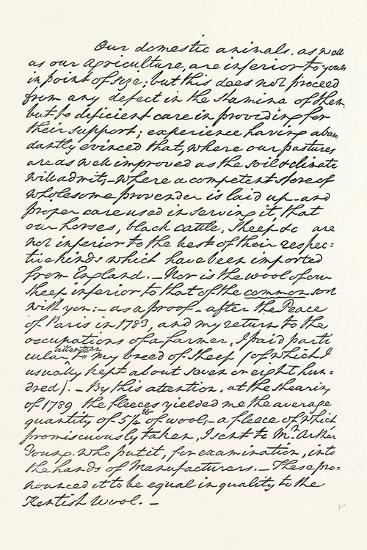 Our domestic animals, as well
as our agriculture, are inferior to yours
in point of size; but this does not proceed
from any defect in the stamina of them,
but to deficient care in providing for
their support; experience having abun
dantly evinced that, where our pastures
are as well improved as the soil & climate
will admit,—where a competent store of
wholesome provender is laid up and
proper care used in serving it, that
our horses, black cattle, sheep &c are
not inferior to the best of their respec-
tive kinds which have been imported
from England.—Nor is the wool of our
sheep inferior to that of the common sort
with you:—as a proof—after the Peace
of Paris in 1783, and my return to the
occupations of a farmer, I paid parti
cular attention to my breed of sheep (of which I
usually kept about seven or eight hun-
dred).—By this atention, at the shearing
of 1789 the fleeces yielded me the average
quantity of 5¼ lb of wool;—a fleece of which
promiscuously taken, I sent to Mr. Arthur
Young, who put it, for examination, into
the hands of Manufacturers.—These pro-
nounced it to be equal in quality to the
Kentish Wool.—